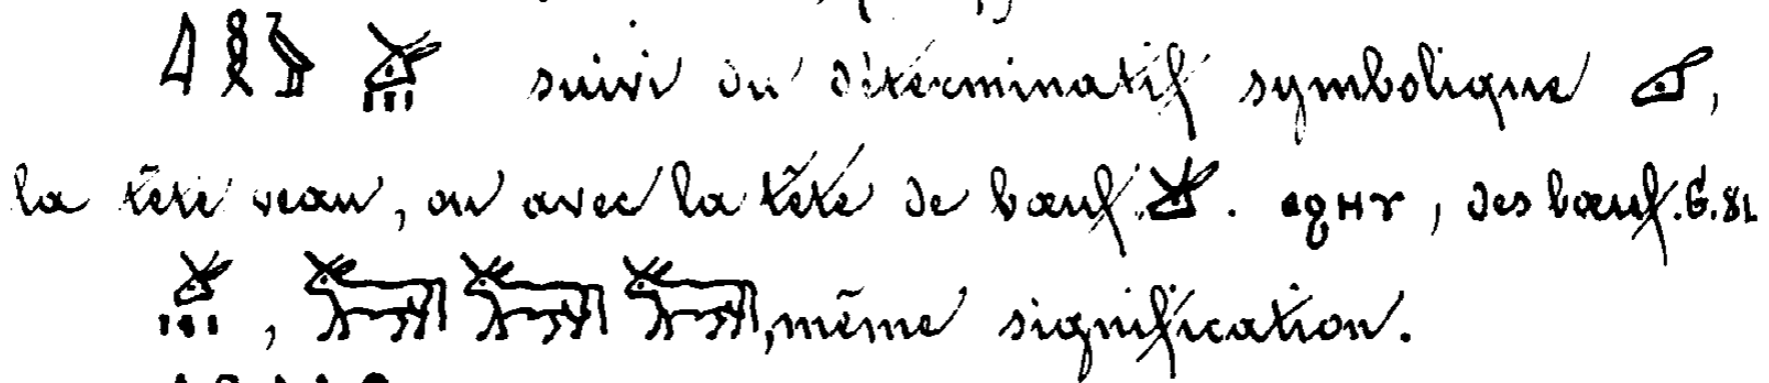 𓇋𓎛𓅱𓃾𓏥 suivi du déterminatif symbolique 𓃿,
la tête veau, ou avec la tête de bœuf 𓃾. ⲉϩⲏⲩ, des bœuf. G. 81
𓃾𓏥, 𓃒𓃒𓃒, même signification.